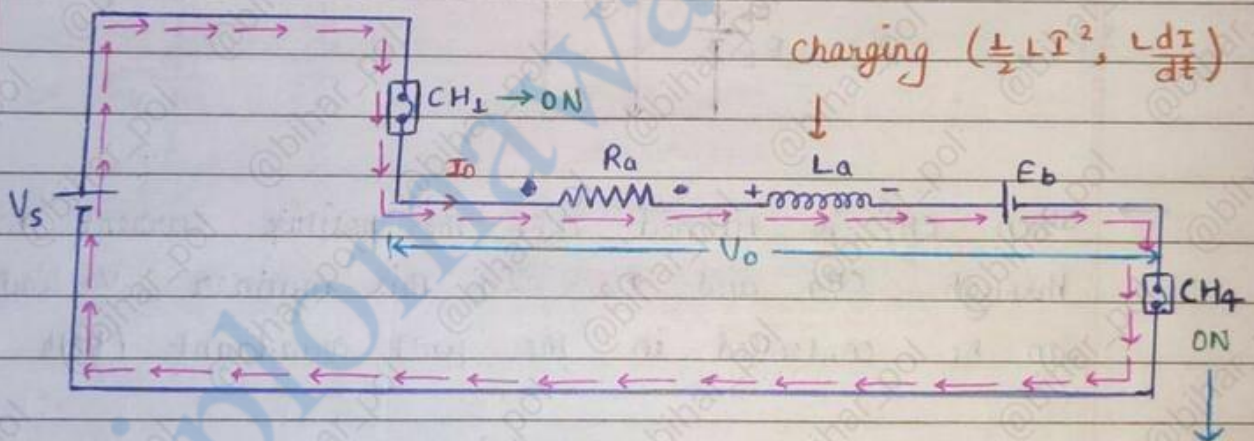 charging (½ L I², L dI/dt)
CH₁ → ON
I₀
Ra
La
Eb
+
-
Vs
V₀
CH4
ON
@bihar_pol